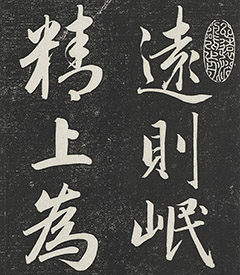 遠則岷
精上為